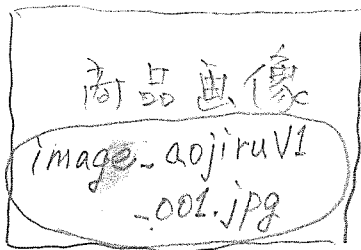 商品画像
image_aojiruV1
_001.jpg